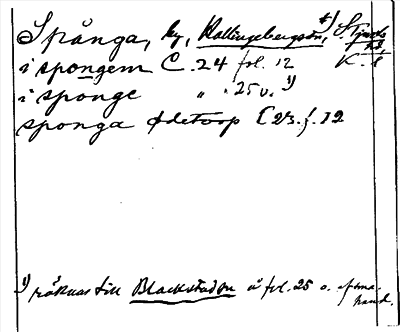 Spånga, by, Hallingebergssn, S. Tjusts hd.
i spongem C. 24 fol. 12 K. l
i sponge " " 25 v. 1)
sponga Ødetorp C 23. f. 12
1) räknas till Blackstadsn å fol. 25 o. af sma. hand.